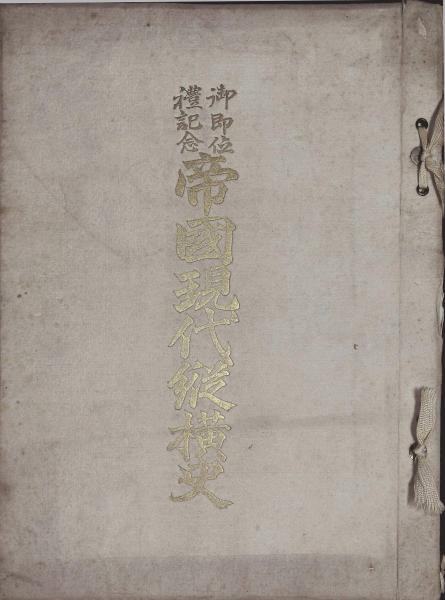 御即位
禮記念
帝國現代縱橫史